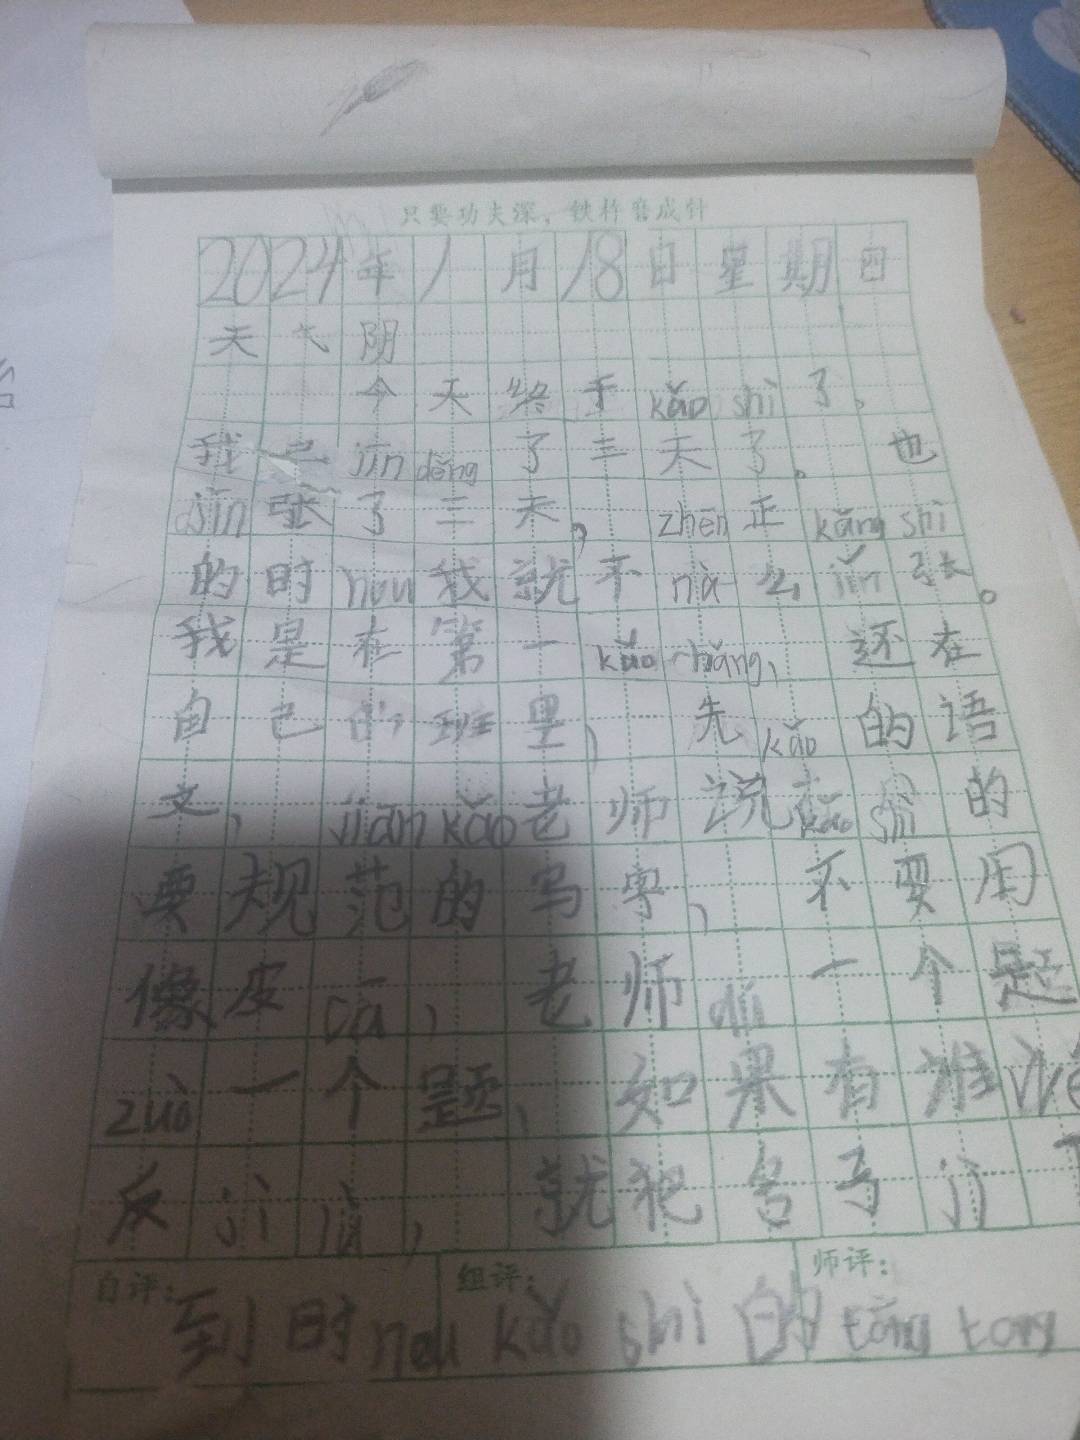 只要功夫深，铁杵磨成针
2024年1月18日星期四
天气阴
今天终于kǎo shì了。
我已jīn děng了三天了。也
jīn张了三天，zhēn正kǎng shì
的时hou我就不nà么jǐn张。
我是在第一kǎo chǎng，还在
自己的班里，先kǎo的语
文，jiān kǎo老师说kǎo shì的
要规范的写字，不要用
像皮cā，老师dú一个题
zuò一个题，如果有谁
反jì lǜ，就把名子jì下
自评： 组评： 师评：
到时hou kǎo shì的tōng tong